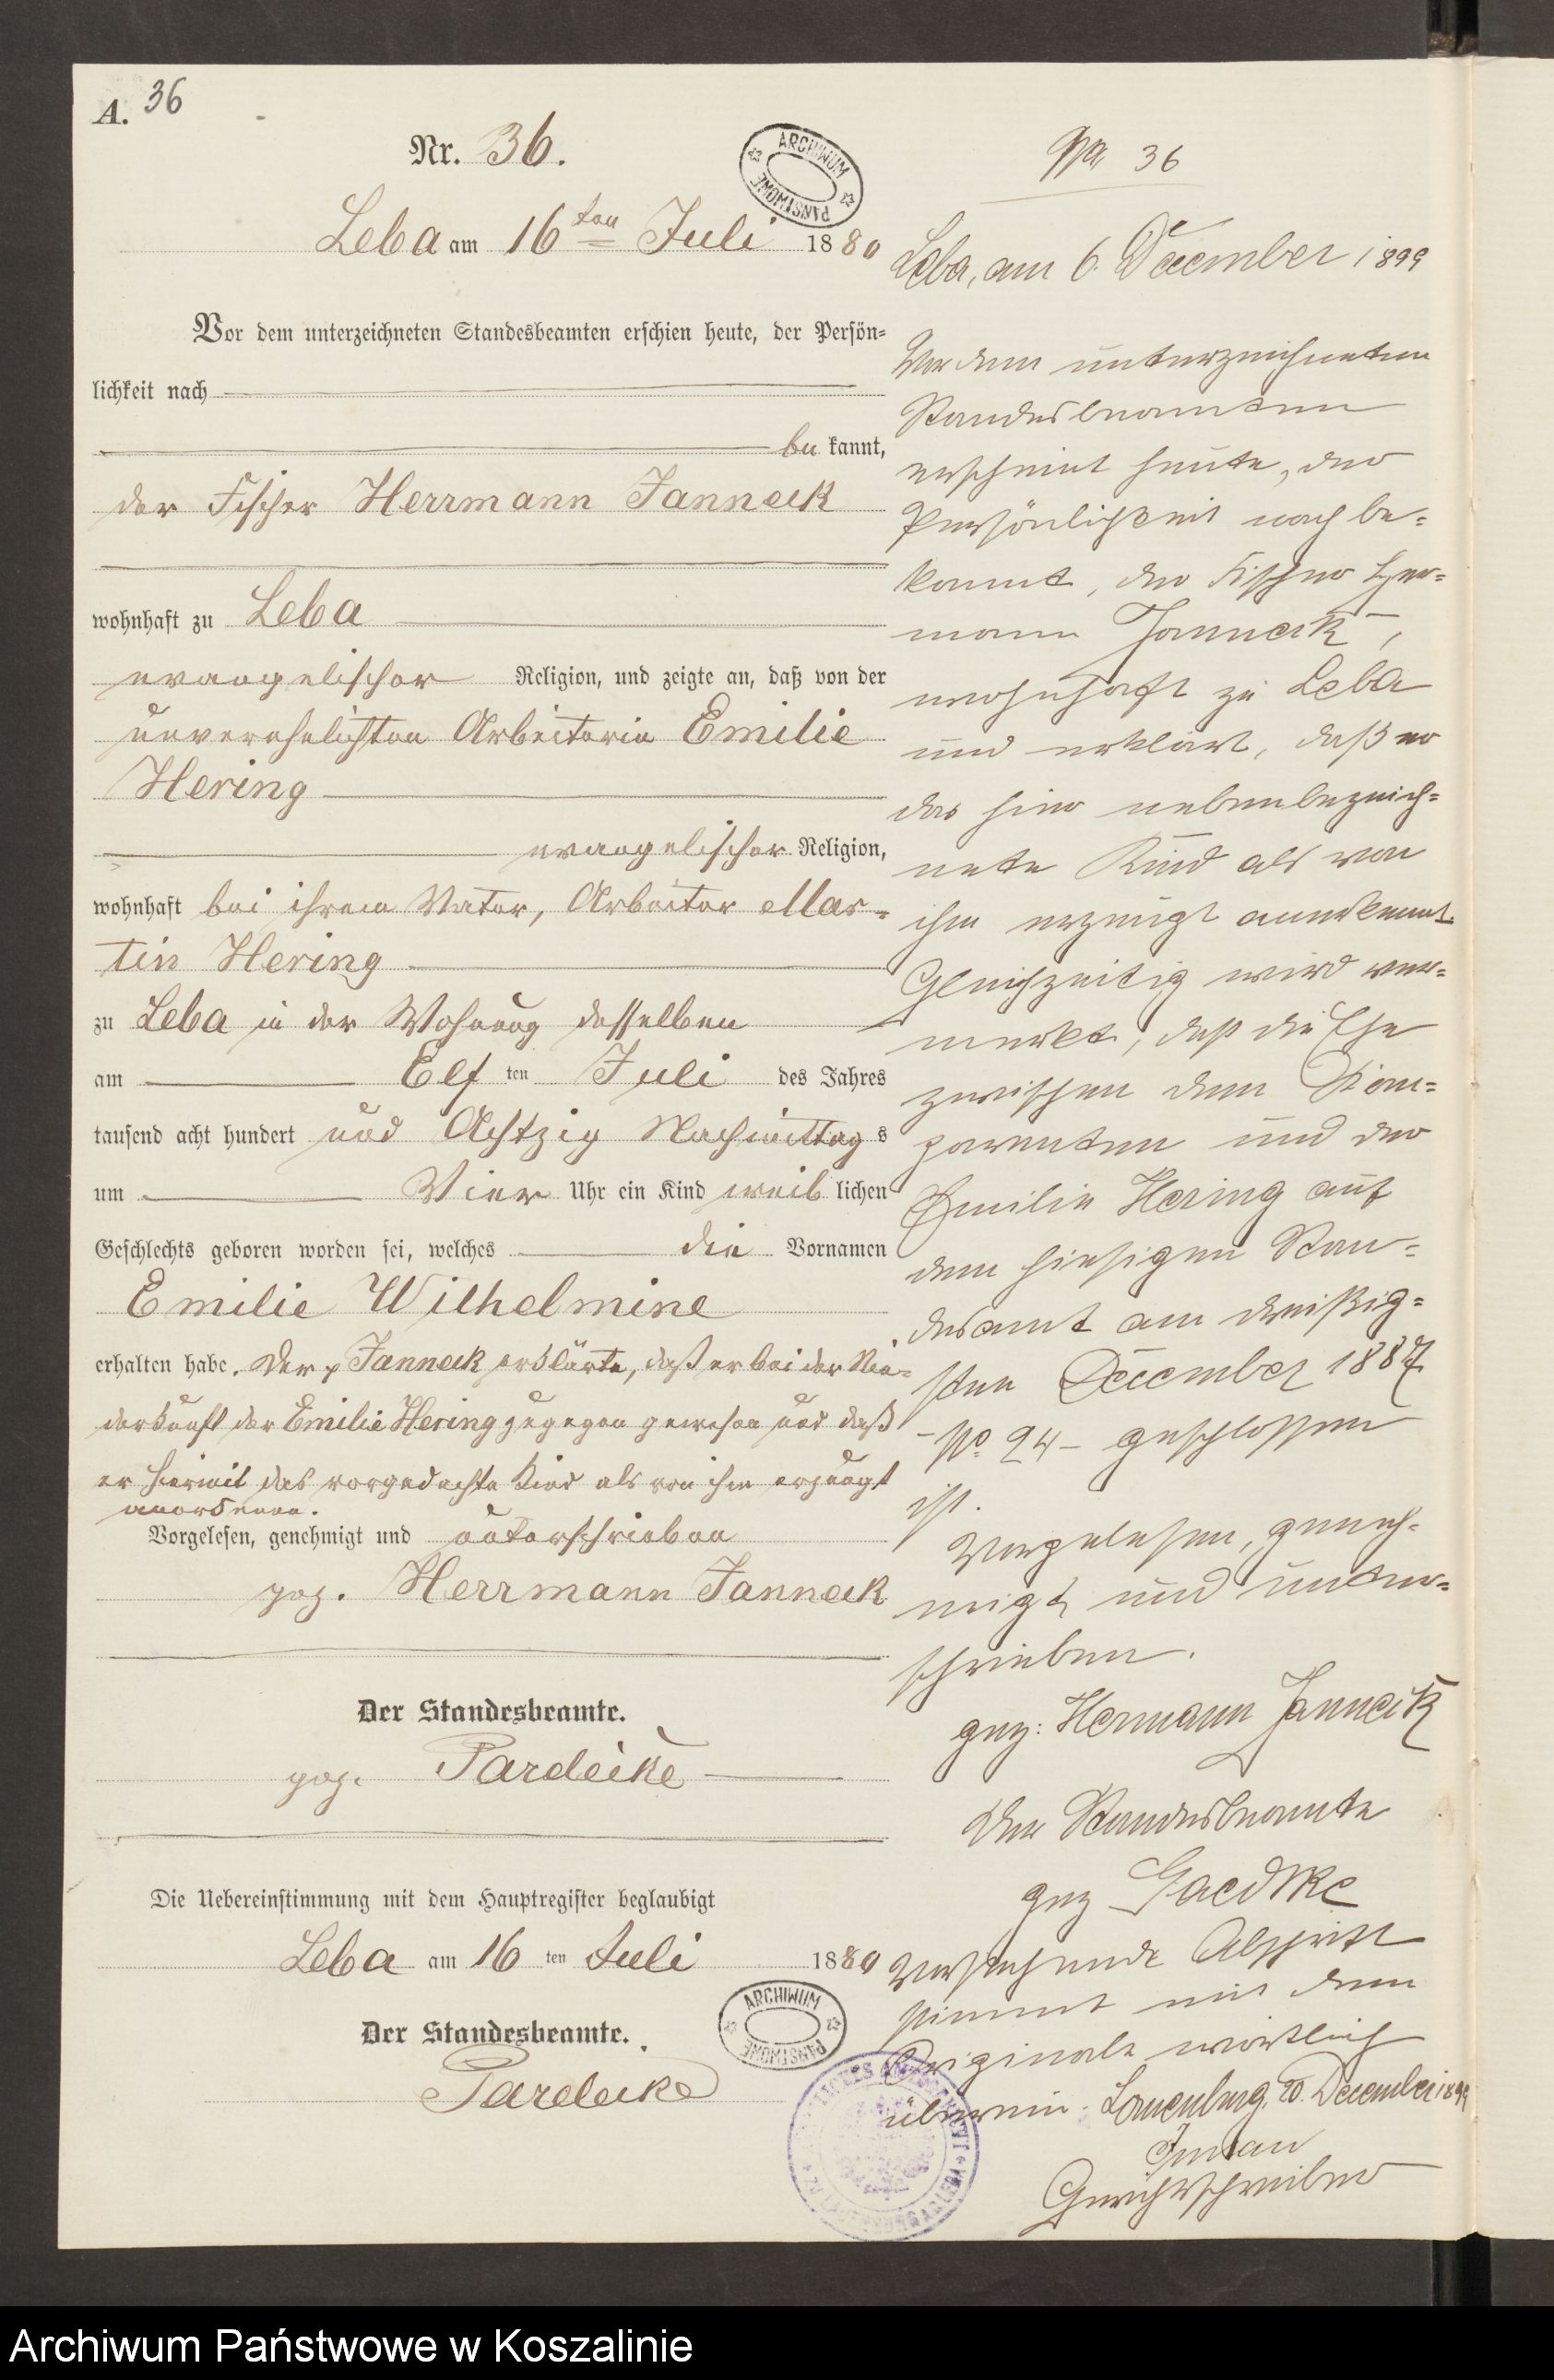 A. 36
Nr. 36.
Leba am 16ten Juli 1880
Vor dem unterzeichneten Standesbeamten erschien heute, der Persön=
lichkeit nach
be kannt,
der Fischer Herrmann Janneck
wohnhaft zu Leba
evangelischer Religion, und zeigte an, daß von der
unverehelichten Arbeiterin Emilie
Hering
evangelischer Religion,
wohnhaft bei ihrem Vater, Arbeiter Mar=
tin Hering
zu Leba in der Wohnung desselben
am Elf ten Juli des Jahres
tausend acht hundert und Achtzig Nachmittag s
um Vier Uhr ein Kind weib lichen
Geschlechts geboren worden sei, welches die Vornamen
Emilie Wilhelmine
erhalten habe. Der p Janneck erklärte, daß er bei der Nie=
derkunft der Emilie Hering zugegen gewesen und daß
er hiermit das vorgedachte Kind als von ihm erzeugt
anerkenne.
Vorgelesen, genehmigt und unterschrieben
gez. Herrmann Janneck
Der Standesbeamte.
gez. Pardeike
Die Uebereinstimmung mit dem Hauptregister beglaubigt
Leba am 16 ten Juli 1880
Der Standesbeamte.
Pardeike
ARCHIWUM PAŃSTWOWE
ARCHIWUM PAŃSTWOWE
No 36
Leba, am 6. December 1899
Vor dem unterzeichneten
Standesbeamten
erscheint heute, der
Persönlichkeit nach be=
kannt, der Fischer Her=
mann Janneck,
wohnhaft zu Leba
und erklärt, daß er
das hier nebenbezeich=
nete Kind als von
ihm erzeugt anerkennt.
Gleichzeitig wird ver=
merkt, daß die Ehe
zwischen dem Kom=
parenten und der
Emilie Hering auf
dem hiesigen Stan=
desamt am dreißig=
sten December 1887
- No 24 - geschlossen
ist.
Vorgelesen, geneh=
migt und unter=
schrieben.
gez: Hermann Janneck
Der Standesbeamte
gez Gaedtke
Vorstehende Abschrift
stimmt mit dem
Originale wörtlich
überein. Lauenburg, 20. December 1899
Gerichtsschreiber
Archiwum Państwowe w Koszalinie